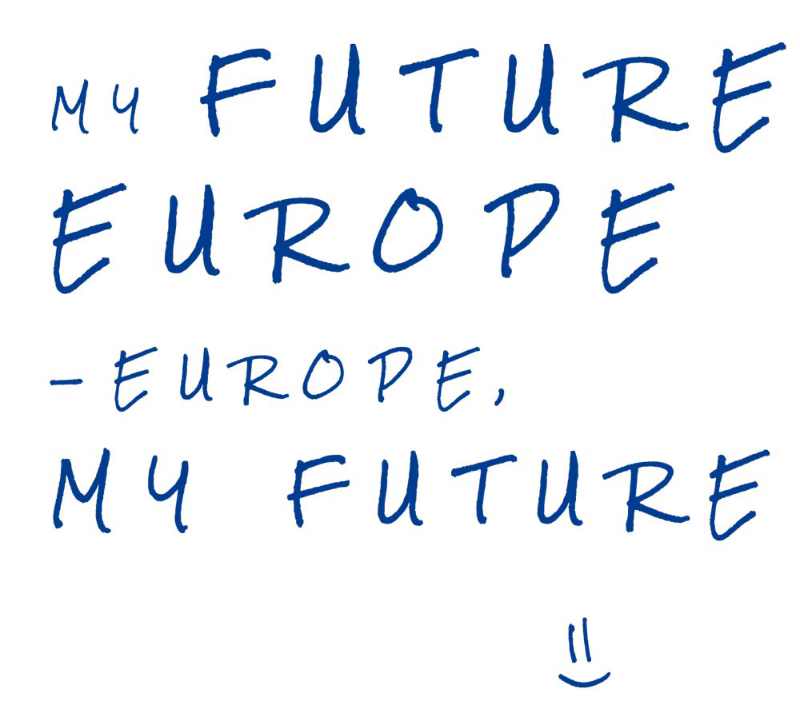 MY FUTURE
EUROPE
- EUROPE,
MY FUTURE